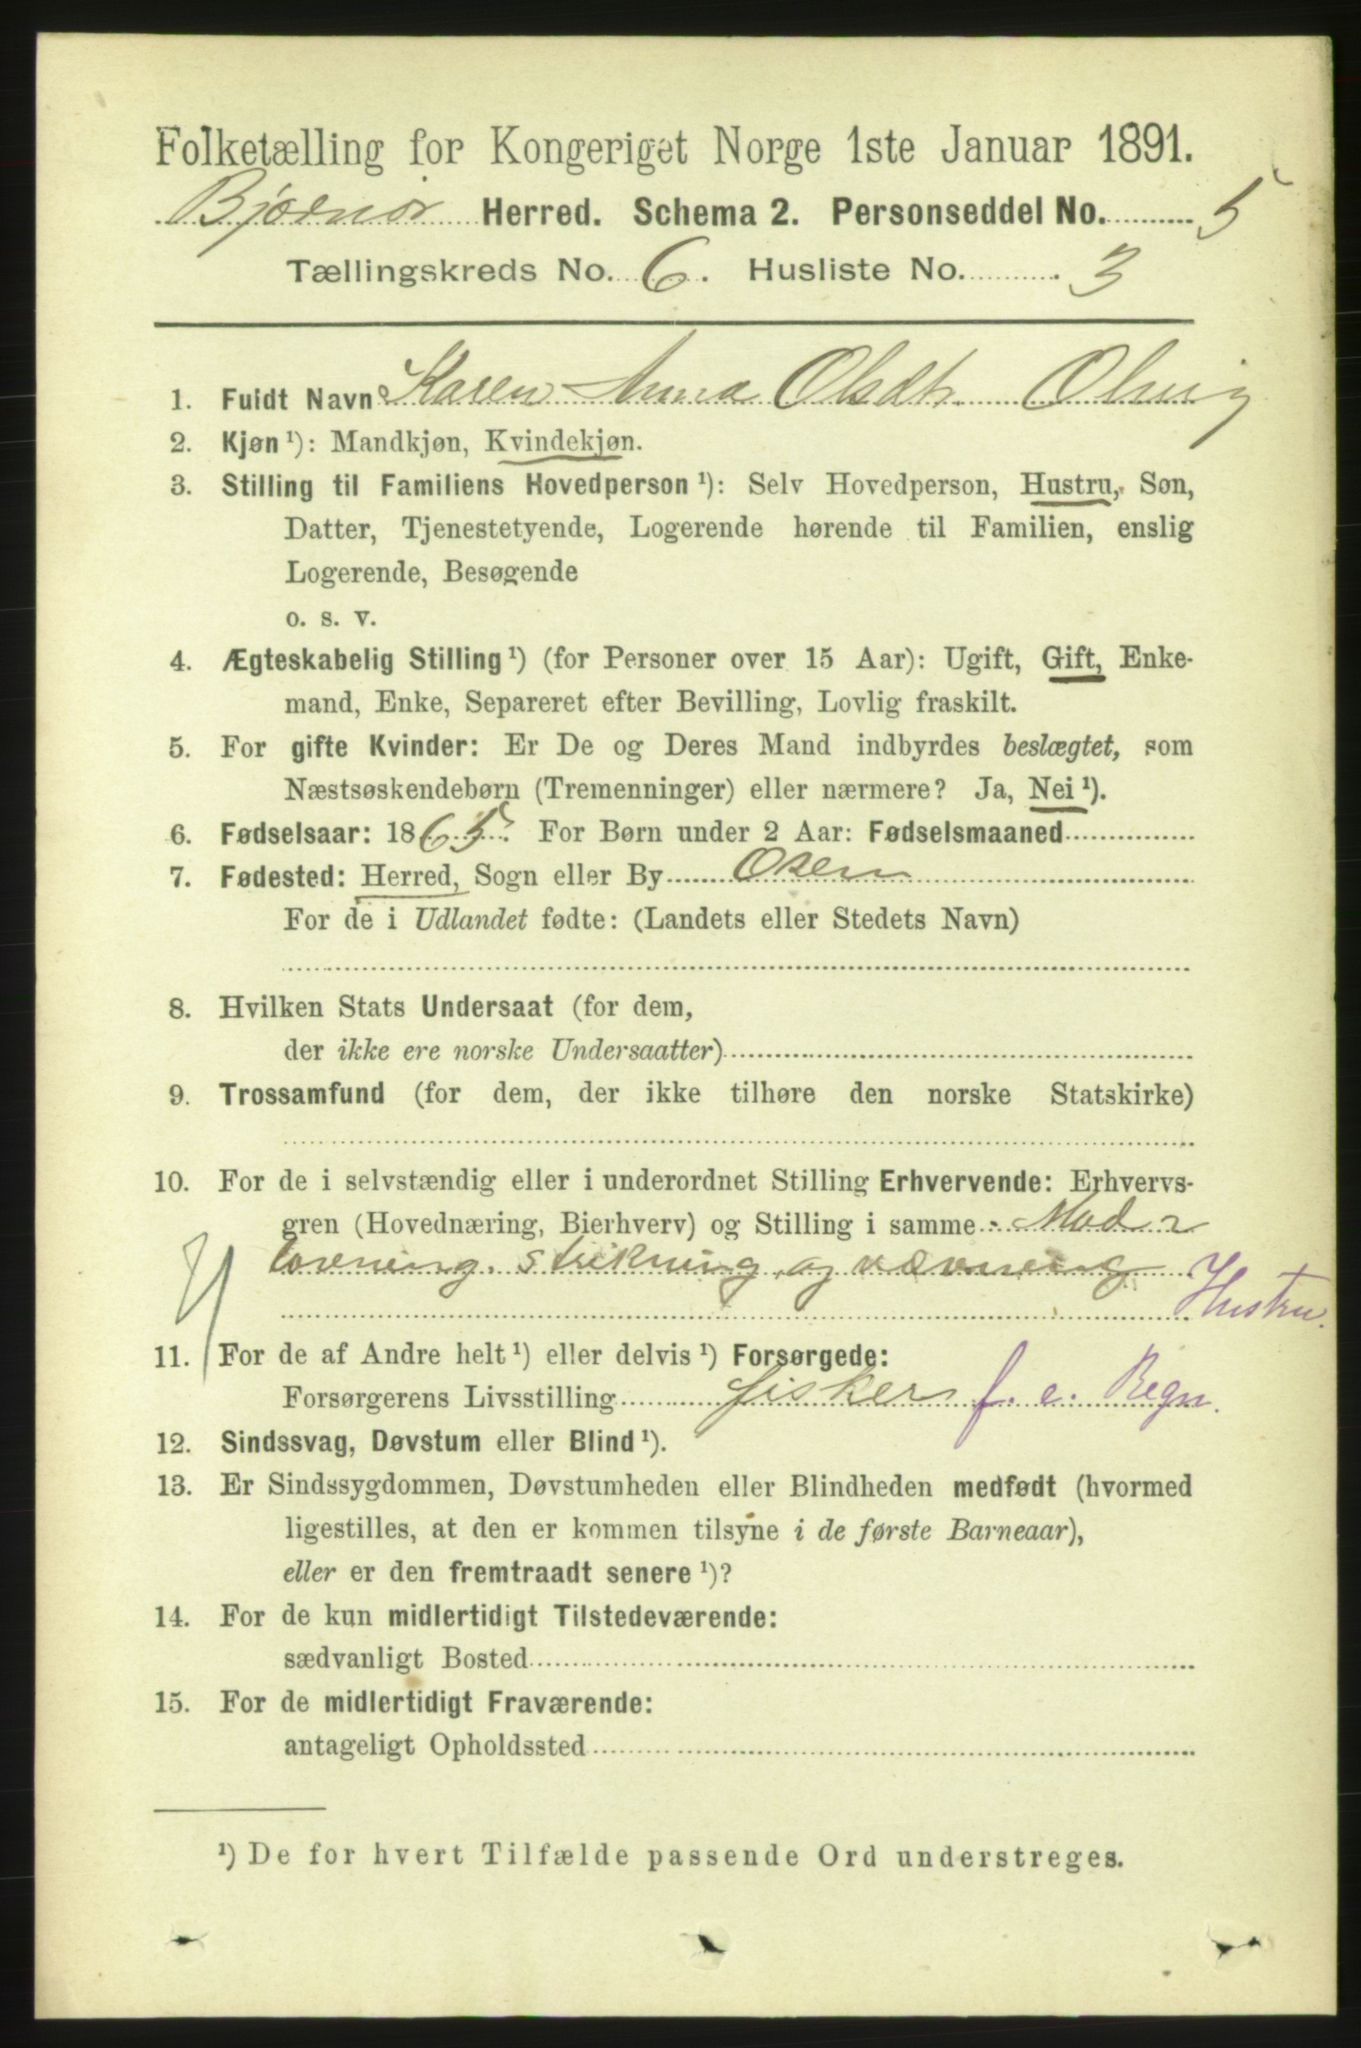 Folketælling for Kongeriget Norge 1ste Januar 1891.
Bjørnør Herred. Schema 2. Personseddel No. 5
Tællingskreds No. 6. Husliste No. 3
1. Fuldt Navn Karen Anna Olsdtr
2. Kjøn ¹): Mandkjøn, Kvindekjøn.
3. Stilling til Familiens Hovedperson ¹): Selv Hovedperson, Hustru, Søn,
Datter, Tjenestetyende, Logerende hørende til Familien, enslig
Logerende, Besøgende
o. s. v.
4. Ægteskabelig Stilling ¹) (for Personer over 15 Aar): Ugift, Gift, Enke-
mand, Enke, Separeret efter Bevilling, Lovlig fraskilt.
5. For gifte Kvinder: Er De og Deres Mand indbyrdes beslægtet, som
Næstsøskendebørn (Tremenninger) eller nærmere? Ja, Nei ¹).
6. Fødselsaar: 1865. For Børn under 2 Aar: Fødselsmaaned
7. Fødested: Herred, Sogn eller By Osen
For de i Udlandet fødte: (Landets eller Stedets Navn)
8. Hvilken Stats Undersaat (for dem,
der ikke ere norske Undersaatter)
9. Trossamfund (for dem, der ikke tilhøre den norske Statskirke)
10. For de i selvstændig eller i underordnet Stilling Erhvervende: Erhvervs-
gren (Hovednæring, Bierhverv) og Stilling i samme Mad
lavning, strikning og vævning
Hustru.
11. For de af Andre helt ¹) eller delvis ¹) Forsørgede:
Forsørgerens Livsstilling fisker f. e. Regn.
12. Sindssvag, Døvstum eller Blind ¹).
13. Er Sindssygdommen, Døvstumheden eller Blindheden medfødt (hvormed
ligestilles, at den er kommen tilsyne i de første Barneaar),
eller er den fremtraadt senere ¹)?
14. For de kun midlertidigt Tilstedeværende:
sædvanligt Bosted
15. For de midlertidigt Fraværende:
antageligt Opholdssted
¹) De for hvert Tilfælde passende Ord understreges.